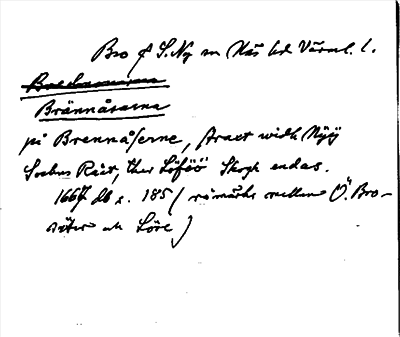 Bro f S. Ny sn Näs hd Värml. l.
Brännåserne
på Brennåserne, straet widh Nyy
Sochns Råå, ther Löföö Skogh endas.
1667 db s. 185 (råmärke mellan Ö. Bro-
säter och Löre)